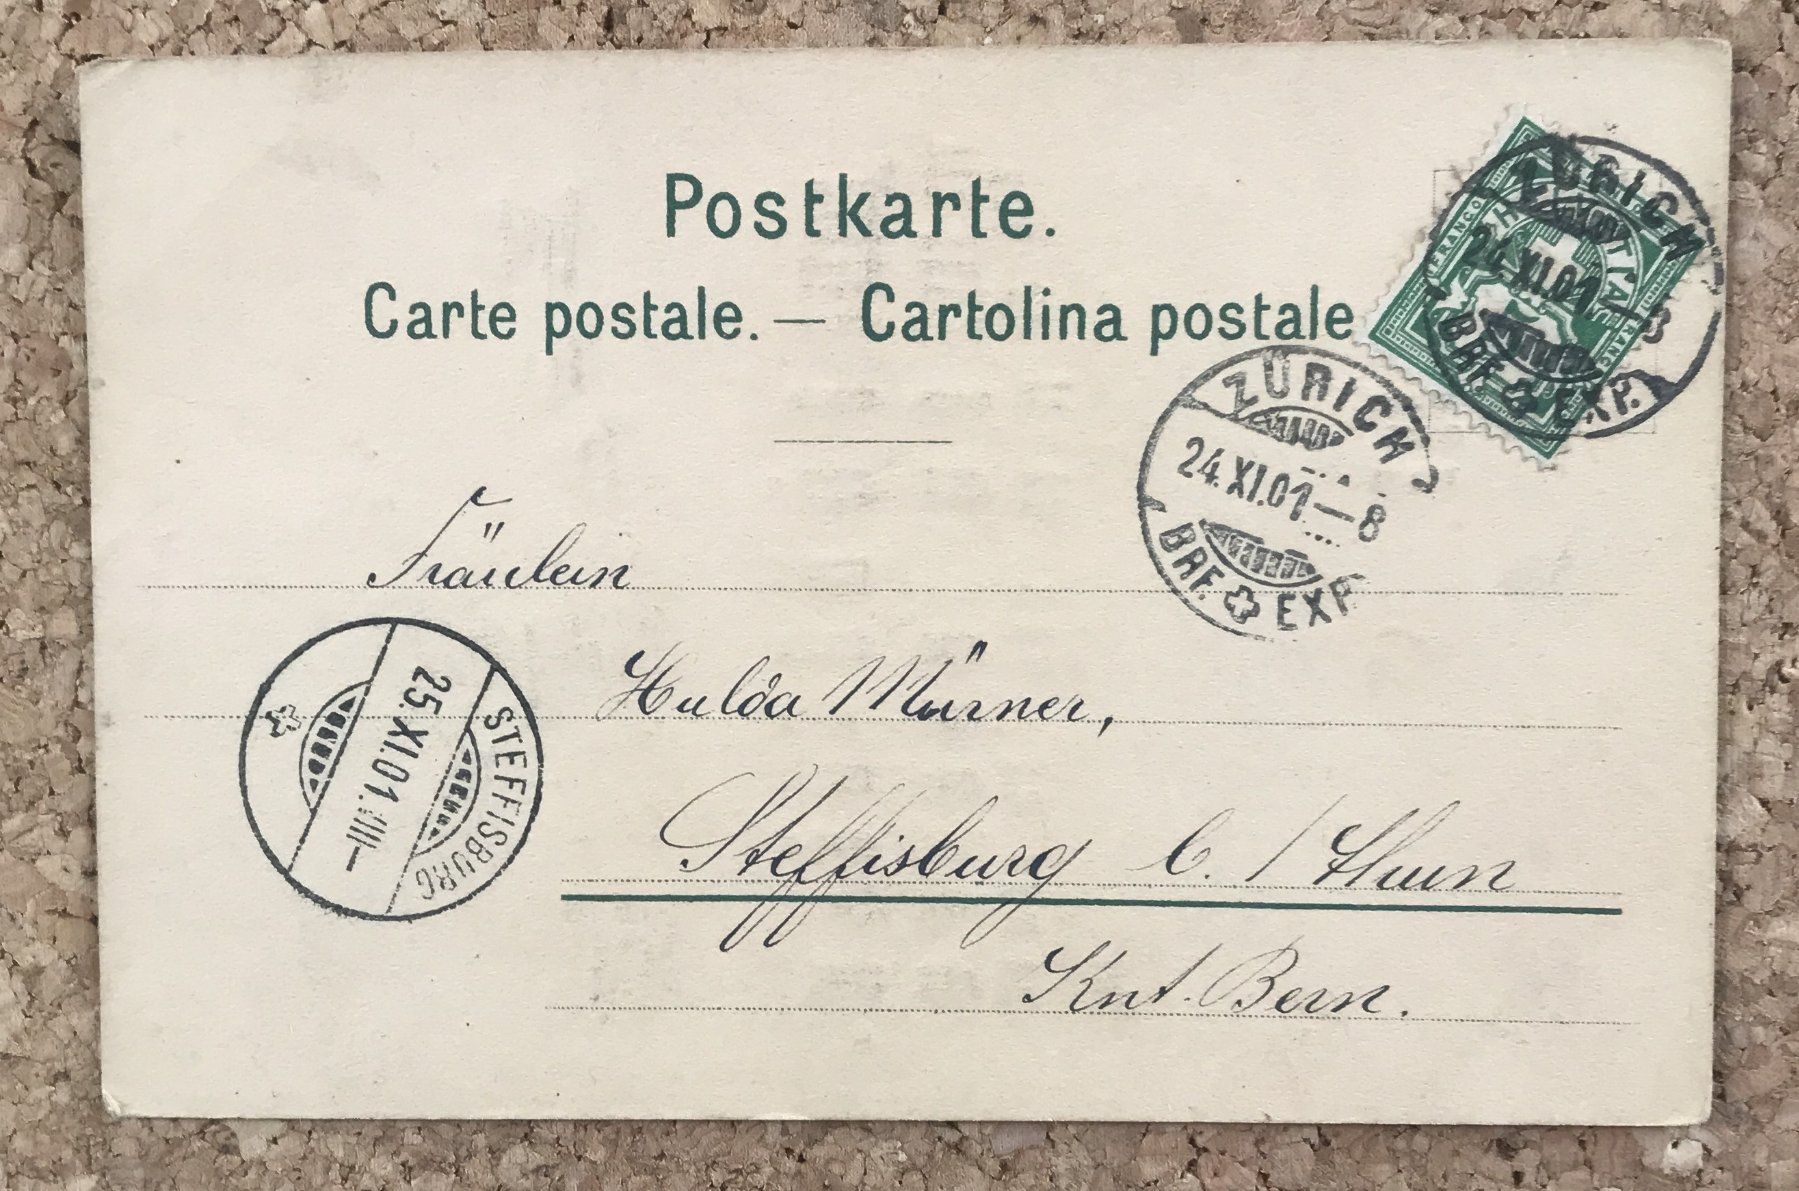 Postkarte.
Carte postale. — Cartolina postale
FRANCO
ZÜRICH
24.XI.01–8
BRF. EXP.
ZÜRICH
24.XI.01–8
BRF. EXP.
Fräulein
Hulda Mürner,
STEFFISBURG
25.XI.01.VIII–
Steffisburg b./Thun
Knt. Bern.